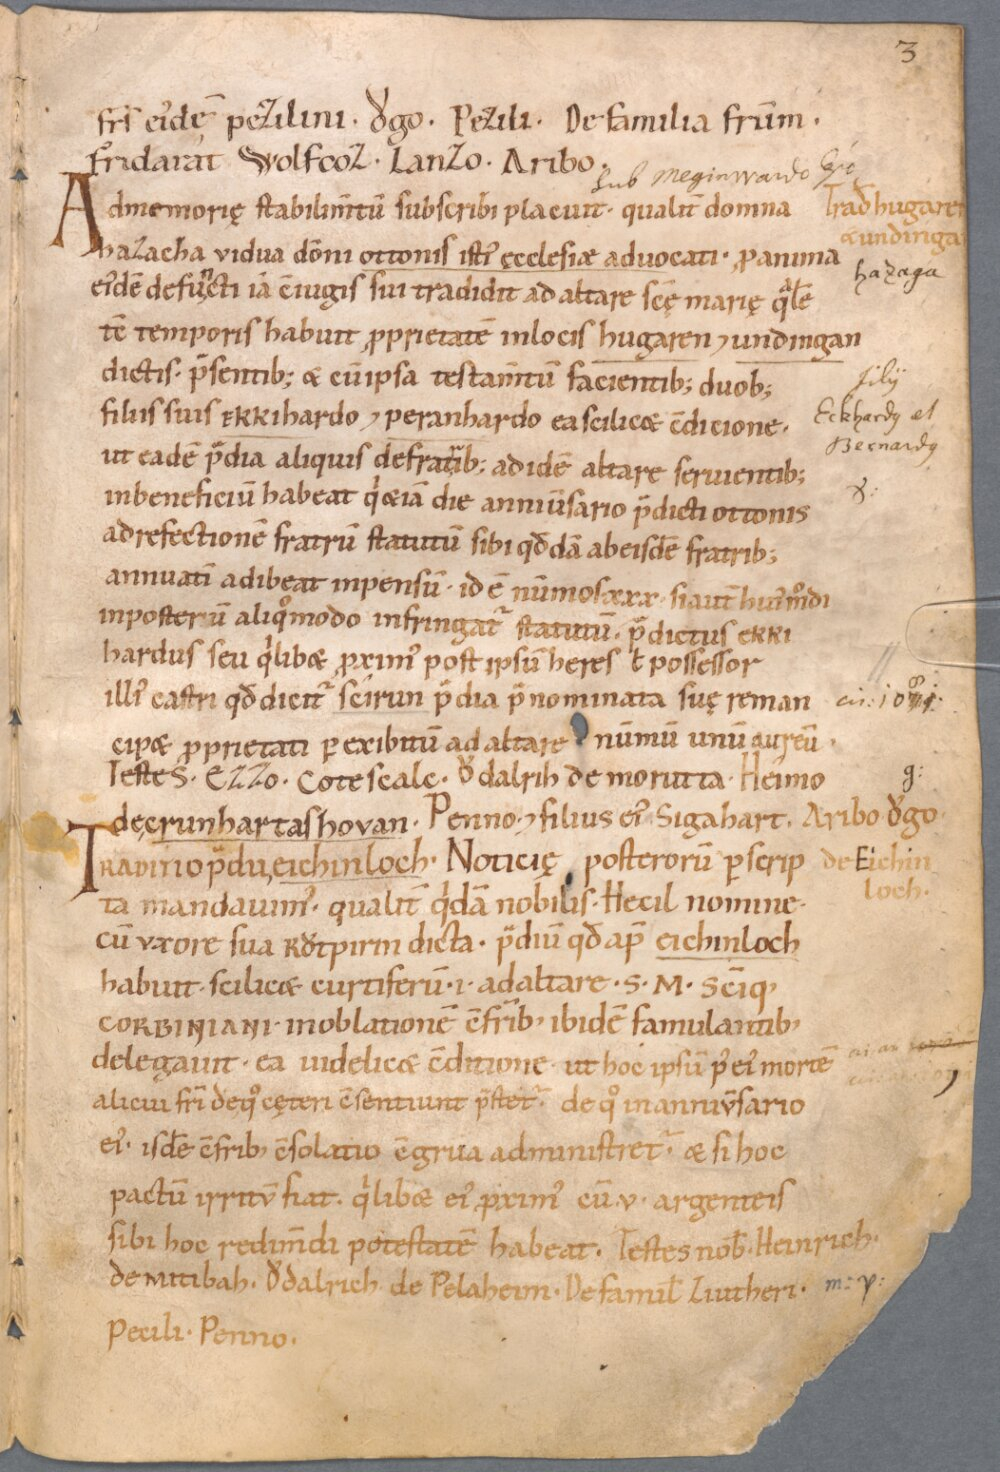 3
fr̄s eiꝰdē peZilini · Ꝟgo · PeZili · De familia frūm ·
fridarat Wolfcoz · LanZo · Aribo ·
Sub Meginwardo Epō
Admemorię stabilim̄tū subscribi placuit · qualit̄ domna
Trad̄ hugaren
& undinga
haZacha vidua dōni ottonis isti' ęcclesiæ aduocati · ꝓanima
hazaga
ei'dē defuncti iā c̄iugis sui tradidit ad altare scę marię q̄le
tē temporis habuit ꝓprietatē inlocis hugaren ⁊ undingan
dictis · p̄sentib; & cū ipsa testam̄tū facientib; duob;
filiis suis ERKIhardo ⁊ peranhardo ea scilicæ c̄dicione ·
filij
Eckhardy et
Bernardy
ut eadē p̄dia aliquis defratrib; adidē altare seruientib;
inbeneficiū habeat q̇ &iā die anniu̅sario p̄dicti ottonis
adrefectionē fratrū statutū sibi qđdā abeisdē fratrib;
annuatī adibeat inpensū · id ē nūmos xxx · siaut̄ hui'mͦdi
inposterū aliqͦmodo infringat᷑ statutū · p̄dictus ERKI
hardus seu q̇libæ ꝓxim' post ipsū heres ł possessor
illi' castri qđ dicit᷑ scirun p̄dia p̄nominata suę reman
cipæ ꝓprietati ꝑ exibitū ad altare nūmū unū aureū ·
Testes · EZZo · Cotescalc · Ꝟdalrih de morutta · Heimo
decrunhartashovan · Penno ⁊ filius ei' Sigahart · Aribo Ꝟgo
TRADITIO p̄dii, eichinloch · Noticię posterorū ꝑscrip
de Eichin
loch ·
ta mandauim' · qualit̄ q̇dā nobilis · Hecil nomine ·
cū uxore sua Rꝟtpirin dicta · p̄diū qđ ap̄ eichinloch
habuit · scilicæ curtiferū · i · ad altare · S · M · Sc̄iq,
CORBINIANI · inoblationē c̄frīb, ibidē famulantib,
delegauit · ea uidelicæ c̄ditione · ut hoc ipsū p' ei' mortē
alicui frī deqͦ cęteri c̄sentiunt p̄stet᷑ · de qͦ in anniu̅sario
ei' · isdē c̄frīb, c̄solatio c̄grua administret᷑ · & si hoc
pactū irritū fiat · q̇libæ ei' ꝓxim' cū · v · argenteis
sibi hoc redim̄di potestatē habeat · Testes nob̄ · Heinrich ·
de Mtibah · Ꝟdalrich de Pelaheim · De famil̄ Liutheri ·
Pecili · Penno ·